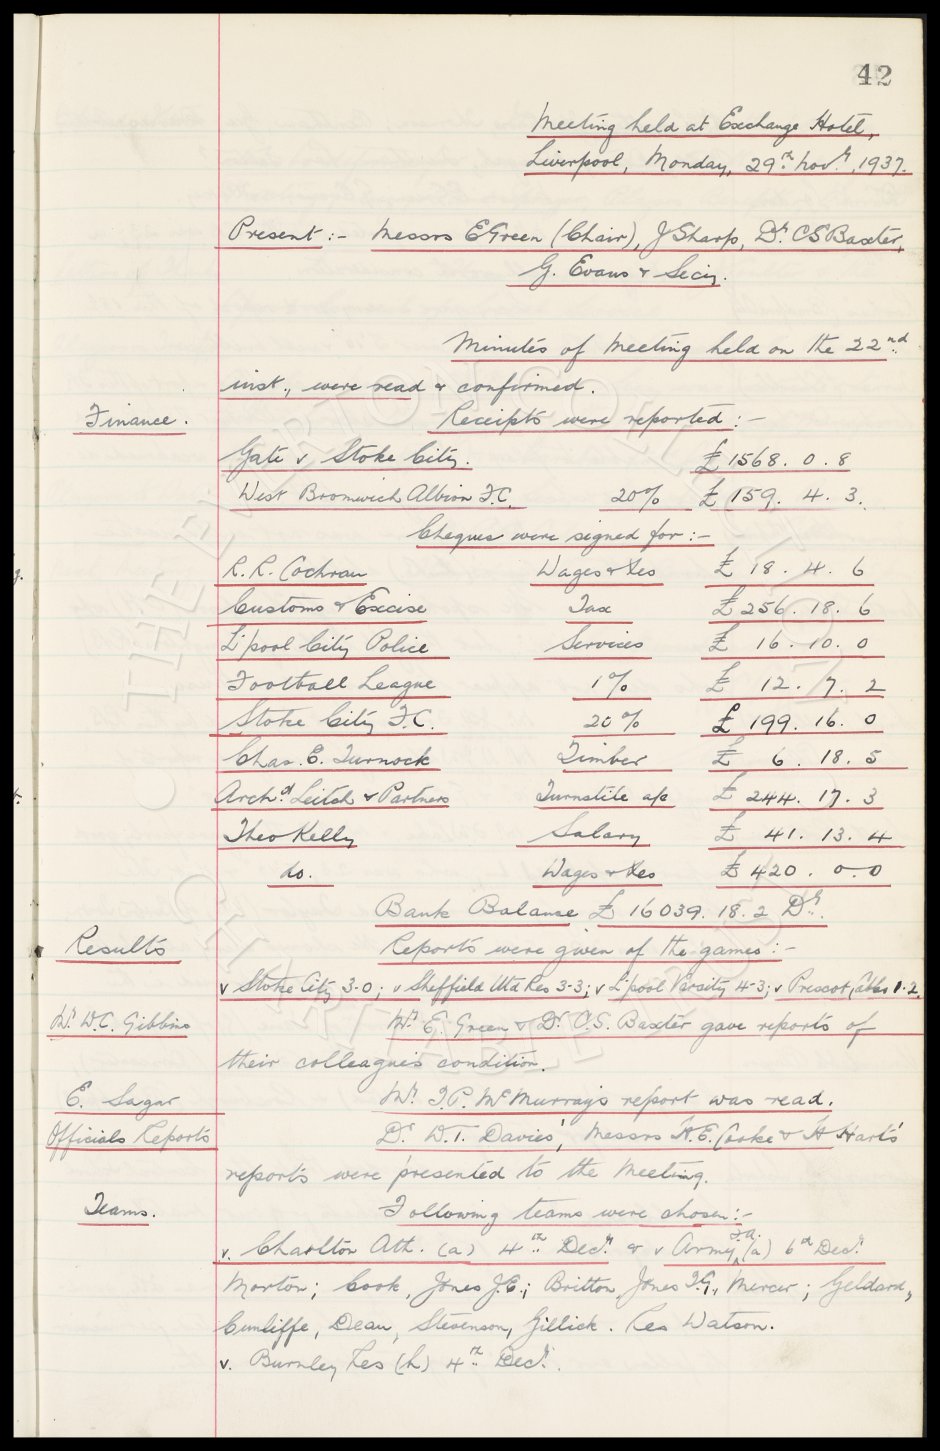 42
Meeting held at Exchange Hotel,
Liverpool, Monday, 29th Novr, 1937.
Present :- Messrs E Green (Chair), J Sharp, Dr. C S Baxter,
G. Evans & Secy.
Minutes of Meeting held on the 22nd
inst., were read & confirmed.
Finance. Receipts were reported :-
Gate v Stoke City. £1568. 0. 8
West Bromwich Albion F.C. 20% £159. 4. 3.
Cheques were signed for :-
R. R. Cochran Wages & Xes £ 18. 4. 6
Customs & Excise Tax £ 256. 18. 6
L'pool City Police Services £ 16. 10. 0
Football League 1% £ 12. 7. 2
Stoke City F.C. 20% £ 199. 16. 0
Chas. E. Turnock Timber £ 6. 18. 5
Archd Leitch & Partners Turnstile a/c £ 244. 17. 3
Theo Kelly Salary £ 41. 13. 4
do. Wages & Xes £ 420. 0. 0
Bank Balance £ 16039. 18. 2 Dr.
Results Reports were given of the games :-
v Stoke City 3-0; v Sheffield Utd Res 3-3; v L'pool Varsity 4-3; v Prescot Cables 1-2.
Mr. W.C. Gibbins Mr. E. Green & Dr. C.S. Baxter gave reports of
their colleagues condition.
E. Sagar Mr. T.P. McMurray's report was read.
Officials Reports Dr. W.T. Davies', Messrs H.E. Cooke & H Hart's'
reports were presented to the Meeting.
Teams. Following teams were chosen :-
v. Charlton Ath. (a) 4th Decr. & v Army F.A. (a) 6th Decr.
Morton; Cook, Jones J.E.; Britton, Jones T.G., Mercer; Geldard,
Cunliffe, Dean, Stevenson, Gillick. Res Watson.
v. Burnley Res (h) 4th Decr.
THE EVERTON COLLECTION
CHARITABLE TRUST